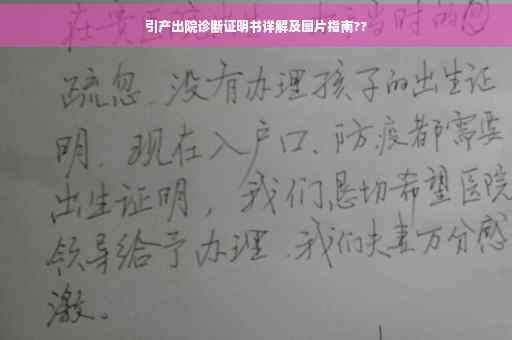 引产出院诊断证明书详解及图片指南??
当时的
疏忽、没有办理孩子的出生证
明、现在入户口、防疫都需要
出生证明，我们恳切希望医院
领导给予办理、我们夫妻万分感
激。